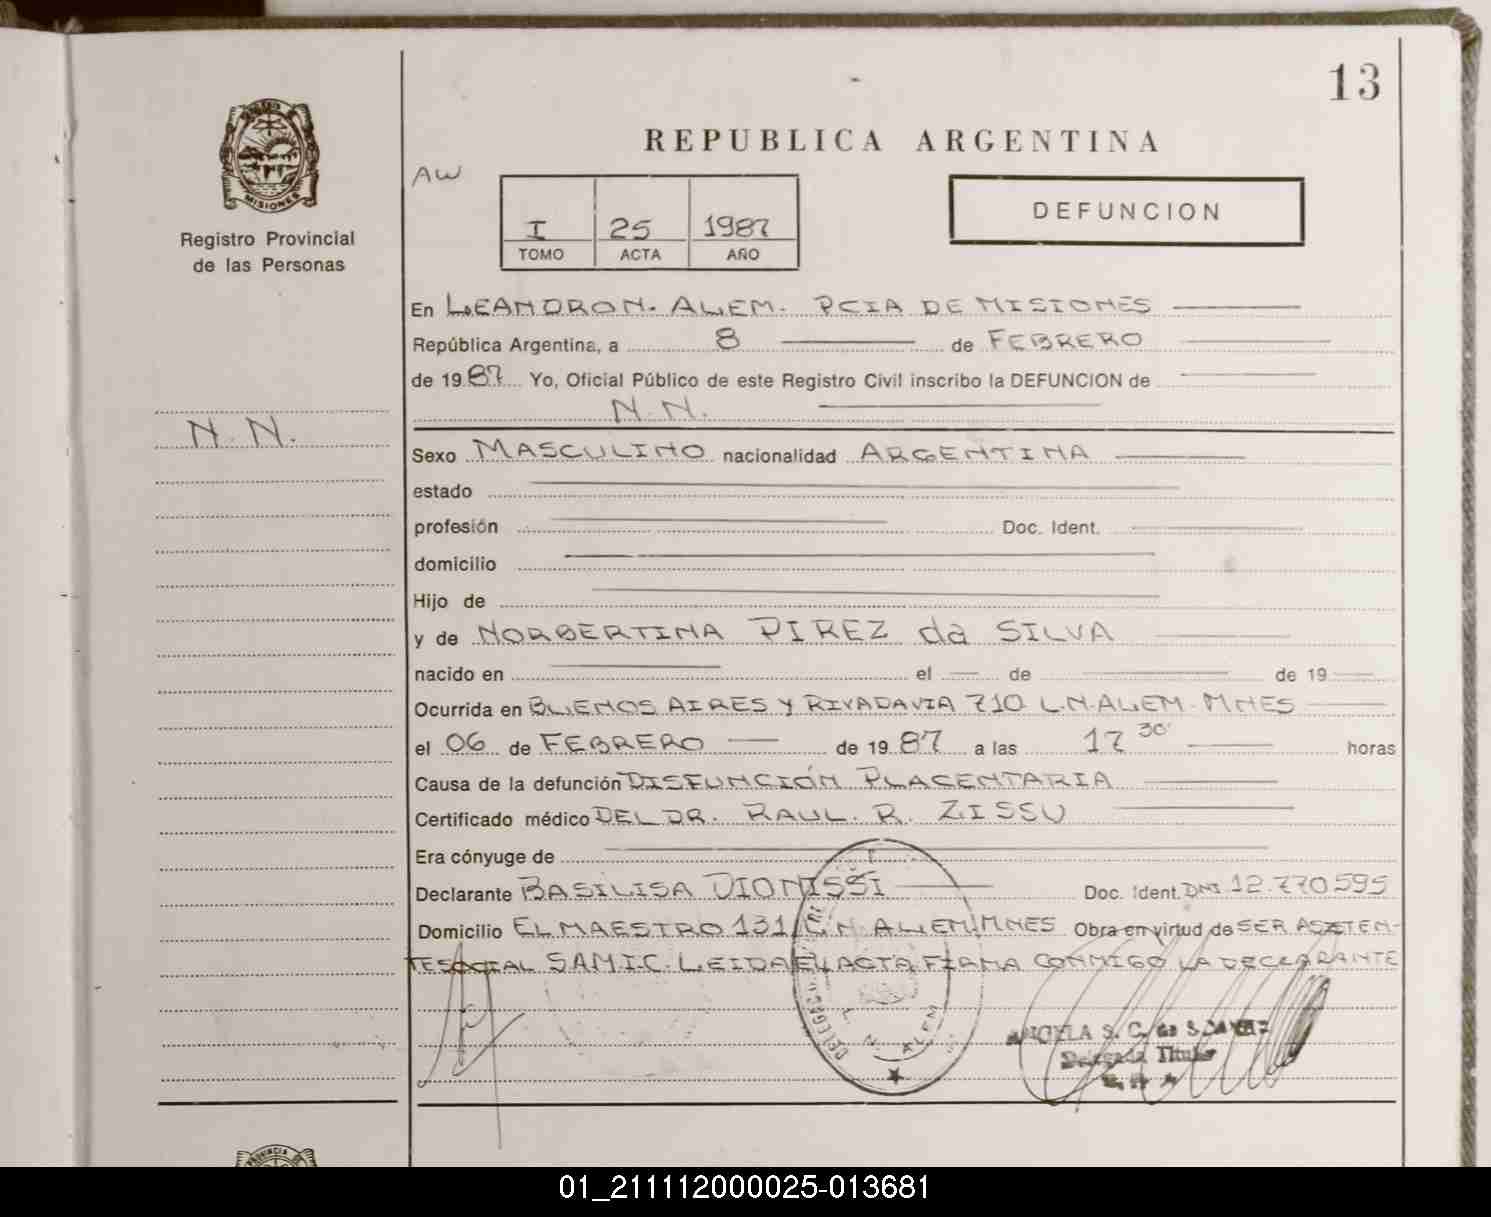 13
REPUBLICA ARGENTINA
MISIONES
Registro Provincial
de las Personas
AW
I 25 1987
TOMO ACTA AÑO
DEFUNCION
En LEANDRO N. ALEM. PCIA DE MISIONES
República Argentina, a 8 de FEBRERO
de 1987 Yo, Oficial Público de este Registro Civil inscribo la DEFUNCION de
N.N.
N.N.
Sexo MASCULINO nacionalidad ARGENTINA
estado
profesión Doc. Ident.
domicilio
Hijo de
y de NORBERTINA PIREZ da SILVA
nacido en el de de 19
Ocurrida en BUENOS AIRES Y RIVADAVIA 710 L.N.ALEM. MNES
el 06 de FEBRERO de 1987 a las 17 30' horas
Causa de la defunción DISFUNCIÓN PLACENTARIA
Certificado médico DEL DR. RAUL. R. ZISSU
Era cónyuge de
Declarante BASILISA DIONISSI Doc. Ident. DNI 12.770595
Domicilio EL MAESTRO 131 L.N. ALEM MNES Obra en virtud de SER ASISTEN-
TE SOCIAL S.A.M.I.C. LEIDA EL ACTA FIRMA CONMIGO LA DECLARANTE
L. N. ALEM
ANGELA S. C. de
Delegada Titular
01_211112000025-013681